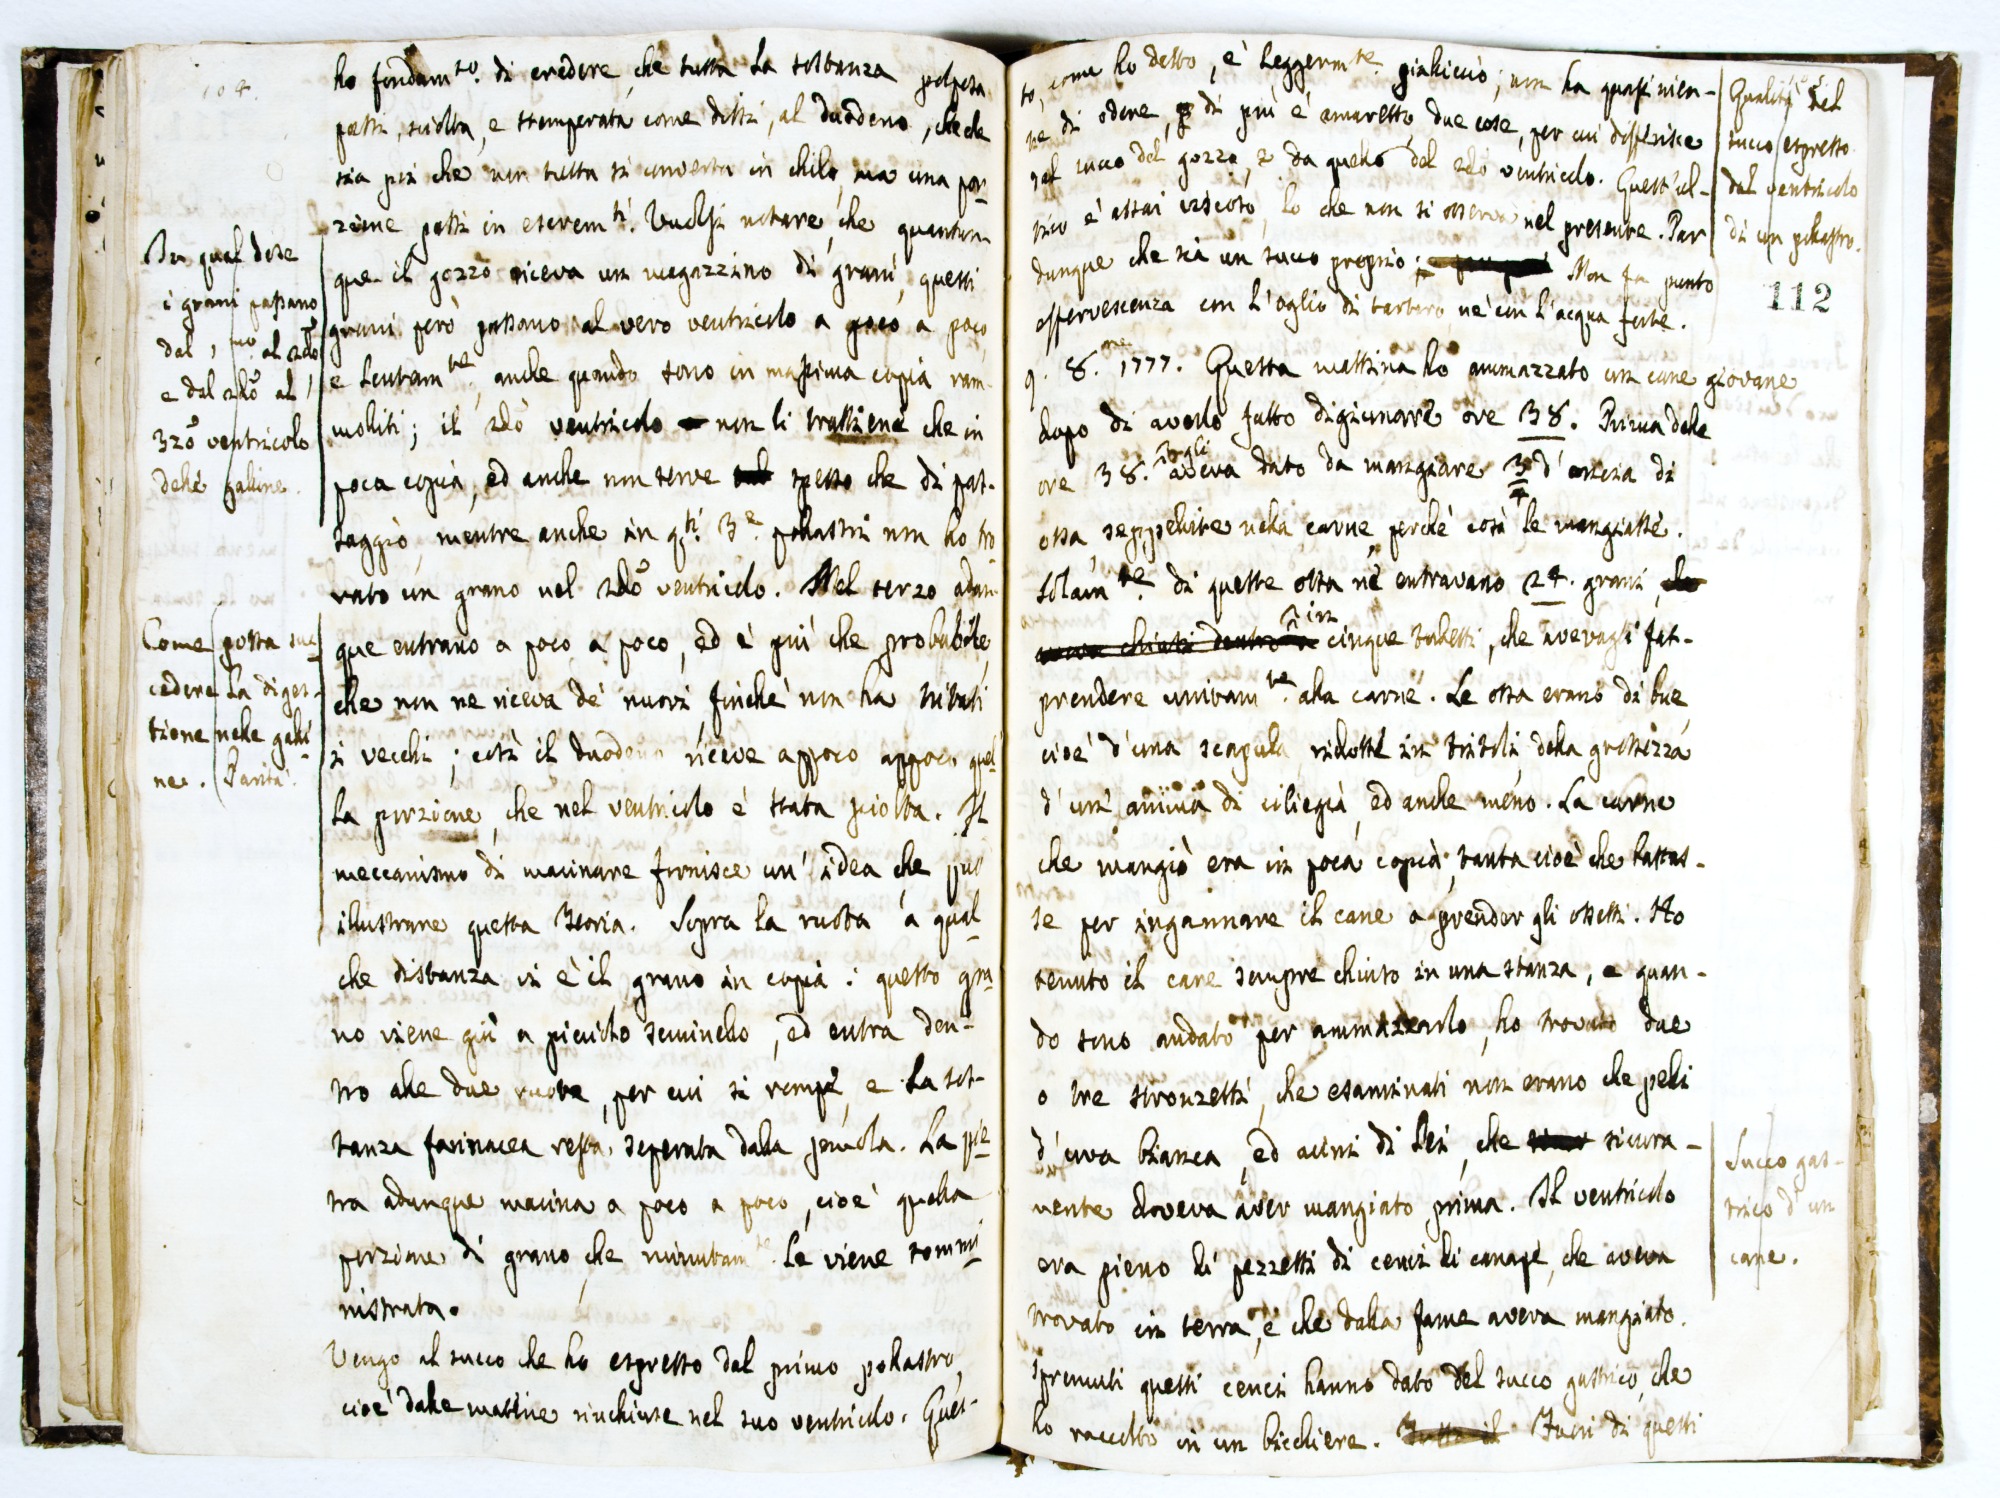 104.
ho fondam.to di credere, che tutta la sostanza polposa
passi, sciolta, e stemperata come dissi, al duodeno, che che
sia poi che non tutta si converta in chilo, ma una por-
zione passi in escrem.ti. Vuolsi notare, che quantun-
que il gozzo riceva un magazzino di grani, questi
grani però passano al vero ventricolo a poco a poco,
e lentam.te, anche quando sono in massima copia ram-
molliti; il 2do ventricolo non li trattiene che in
poca copia, ed anche non serve spesso che di pas-
saggio, mentre anche in q.ti 3.e pollastri non ho tro
vato un grano nel 2do ventricolo. Nel terzo adun
que entrano a poco a poco, ed è più che probabile,
che non ne riceva de' nuovi, finchè non ha tritati
i vecchi; così il duodeno riceve appoco appoco quel-
la porzione, che nel ventricolo è stata sciolta. Il
meccanismo di macinare fornisce un' idea che può
illustrare questa teoria. Sopra la ruota a qual-
che distanza vi è il grano in copia: questo gra-
no viene giù a piccolo seminello, ed entra den-
tro alle due ruote, per cui si rompe, e la sos-
tanza farinacea resta seperata dalla semola. La pie-
tra adunque macina a poco a poco, cioè quella
porzione di grano, che minutam.te le viene sommi-
nistrata.
Vengo al succo che ho espresso dal primo pollastro,
cioè dalle mattine rinchiuse nel suo ventricolo. Ques-
In qual dose
i grani passano
dal 1.mo al 2do
e dal 2do al
3zo ventricolo
delle galline.
Come possa suc-
cedere la diges-
tione nelle galli
ne. Parità.
to, come ho detto, è leggerm.te gialliccio; non ha quasi nien-
te di odore, di più è amaretto, due cose, per cui differisce
dal succo del gozzo, e da quello del 2do ventricolo. Quest' ul-
timo è assai viscoso, lo che non si osserva nel presente. Par
dunque che sia un succo proprio; Non fa punto
effervescenza con l'oglio di tartaro, nè con l'acqua forte.
9. 8.me 1777. Questa mattina ho ammazzato un cane giovane
dopo di averlo fatto digiunare ore 38. Prima delle
ore 38. io gli aveva dato da mangiare 3/4 d' oncia di
ossa seppellite nella carne, perchè così le mangiasse.
Solam.te di queste ossa ne entravano 24. grani,
in cinque tubetti, che avevagli fat-
prendere unitam.te alla carne. Le ossa erano di bue,
cioè d' una scapula ridotte in tritoli della grossezza
d' un' anima di ciliegia, ed anche meno. La carne
che mangiò era in poca copia, tanta cioè che bastas-
se per ingannare il cane a prender gli ossetti. Ho
tenuto il cane sempre chiuso in una stanza, e quan-
do sono andato per ammazzarlo, ho trovato due
o tre stronzetti, che esaminati non erano che pelli
d' uva bianca, ed acini di lei, che sicura-
mente doveva aver mangiato prima. Il ventricolo
era pieno di pezzetti di cenci di canape, che aveva
trovato in terra, e che dalla fame aveva mangiato.
Spremuti questi cenci hanno dato del succo gastrico, che
ho raccolto in un bicchiere. Fuori di questi
105.
Qualità del
succo espresso
dal ventricolo
di un pollastro.
112
Succo gas-
trico d' un
cane.